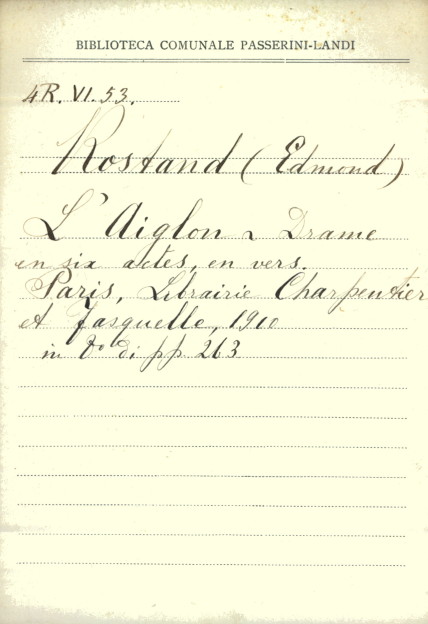 BIBLIOTECA COMUNALE PASSERINI-LANDI
4R. VI. 53.
Rostand (Edmond)
L'Aiglon ~ Drame
en six actes, en vers.
Paris, Librairie Charpentier
et Fasquelle, 1910
in 8º di pp 263